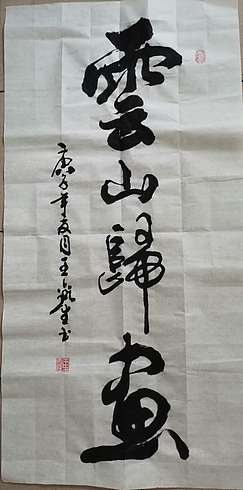 雲山歸畫
庚子年夏月王
書